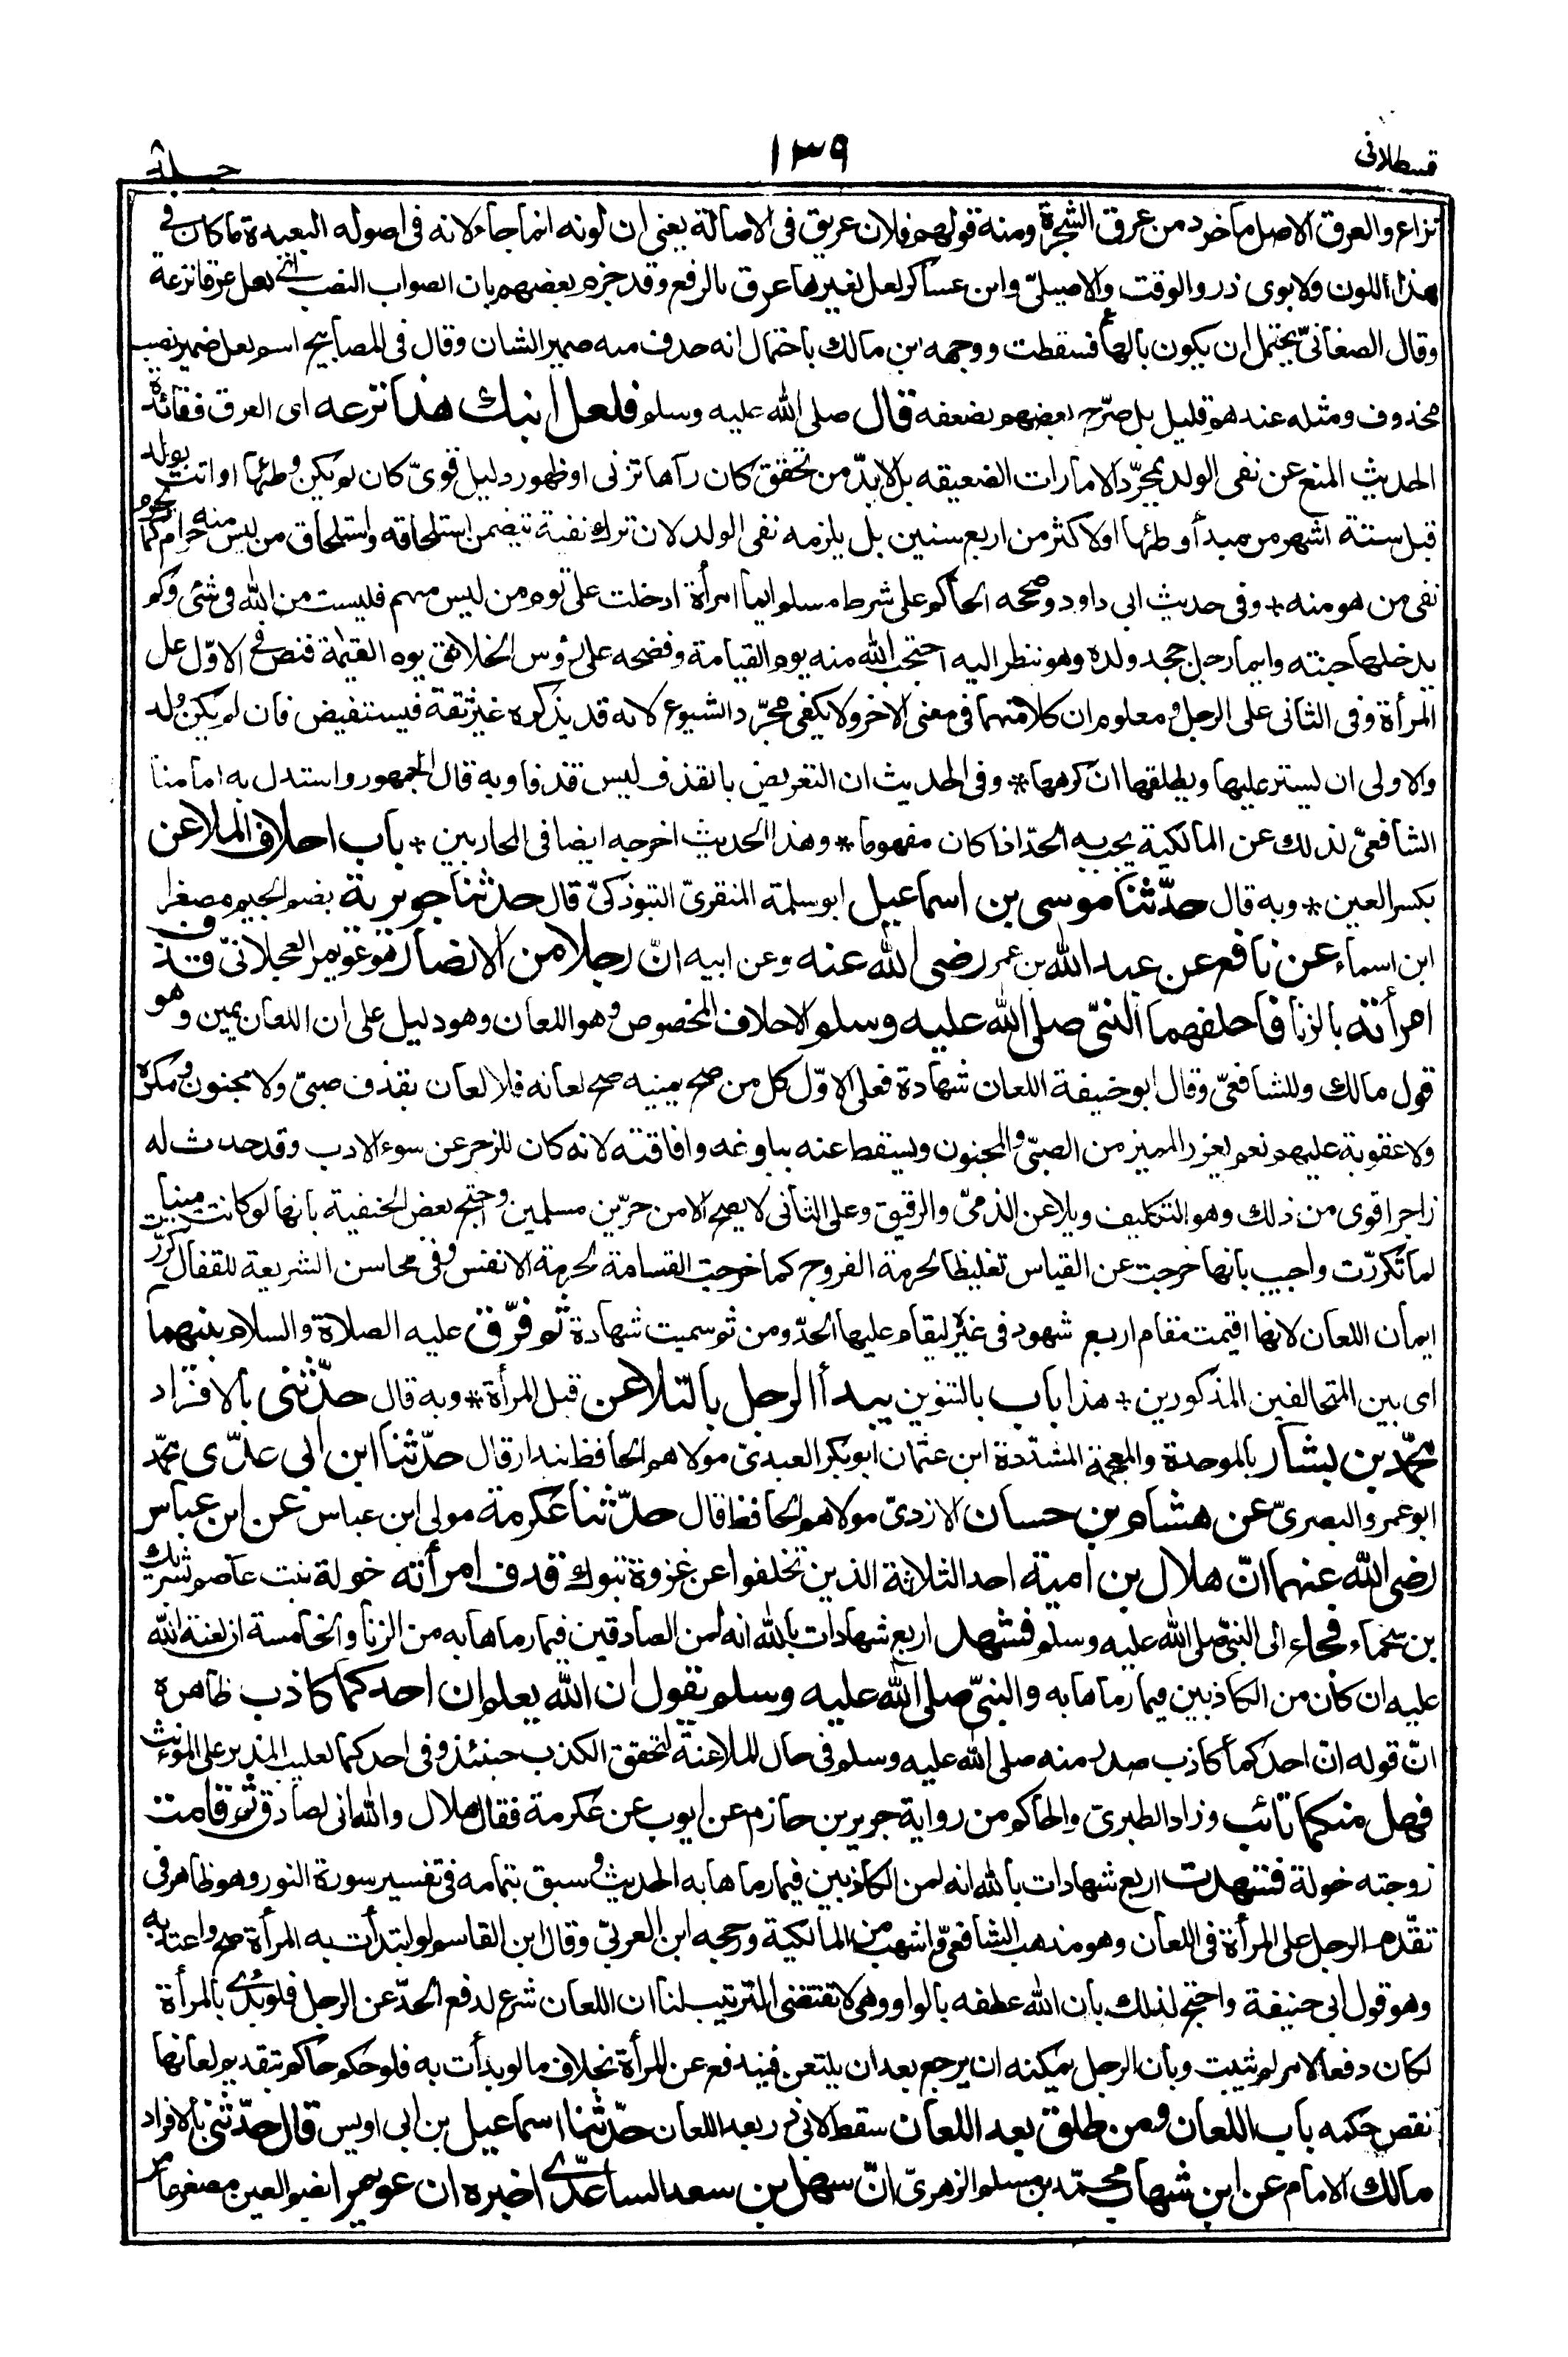 قسطلانی
١٣٩
جلد ٨
نزاع والعرق الاصل مأخوذ من عرق الشجرة ومنه قولهم فلان عريق فى الاصالة يعنى ان لونه انما جاء لانه فى اصوله البعيدة ما كان فى
هذا اللون ولابوى ذر والوقت والاصيلىّ وابن عساكر لعل لغيرها عرق بالرفع وقد جزم بعضهم بان الصواب النصب اى لعل عرقا نزعه
وقال الصغانىّ يحتمل ان يكون بالهاء فسقطت ووجهه ابن مالك باحتمال انه حذف منه ضمير الشان وقال فى المصابيح اسم لعل ضمير نصب
محذوف ومثله عندهم قليل بل صرّح بعضهم بضعفه قال صلى الله عليه وسلم فلعل ابنك هذا نزعه اى العرق ففائدة
الحديث المنع عن نفى الولد بمجرّد الامارات الضعيفه بل لابدّ من تحقق كان رآها تزنى او ظهور دليل قوىّ كان لم يكن وطئها او اتت بولد
قبل ستة اشهر من مبدأ وطئها اولاكثر من اربع سنين بل يلزمه نفى الولد لان ترك نفية تتضمن استلحاقه واستلحاق من ليس منه حرام كما يحرم
نفى من هو منه * وفى حديث ابى داود وصححه الحاكم على شرط مسلم ايما امرأة ادخلت على قوم من ليس منهم فليست من الله فى شئ ولم
يدخلها جنته وايما رجل جحد ولده وهو ينظر اليه احتجب الله منه يوم القيامة وفضحه على رؤس الخلائق يوم القيمة فنص فى الاوّل على
المرأة وفى الثانى على الرجل ومعلوم ان كلا منهما فى معنى الاخر ولا يكفى مجرّد الشيوع لانه قد يذكره غير ثقة فيستفيض فان لم يكن ولد
والاولى ان يستر عليها ويطلقها ان كرهها * وفى الحديث ان التعريض بالقذف ليس قذفا وبه قال الجمهور واستدل به امامنا
الشافعىّ لذلك عن المالكية يجب به الحدّ اذا كان مفهوما * وهذا الحديث اخرجه ايضا فى المحاربين * باب احلاف الملاعن
بكسر العين * وبه قال حدّثنا موسى بن اسماعيل ابو سلمة المنقرىّ التبوذكىّ قال حدثنا جويرية بضم الجيم مصغرا
ابن اسماء عن نافع عن عبد الله بن عمر رضى الله عنه وعن ابيه انّ رجلا من الانصار هو عويمر العجلانىّ قذف
امرأته بالزنا فأحلفهما النبىّ صلى الله عليه وسلم الاحلاف المخصوص وهو اللعان وهو دليل على ان اللعان يمين وهو
قول مالك وللشافعىّ وقال ابو حنيفة اللعان شهادة فعلى الاوّل كل من صح يمينه صح لعانه فلا لعان بقذف صبىّ ولا مجنون ومكره
ولا عقوبة عليهم نعم يعزر المميز من الصبىّ والمجنون ويسقط عنه ببلوغه وافاقته لانه كان للزجر عن سوء الادب وقد حدث له
زاجر اقوى من ذلك وهو التكليف ويلاعن الذمىّ والرقيق وعلى الثانى لا يصح الا من حرّين مسلمين واحتج بعض الحنفية بانها لو كانت يمينا
لما تكررّت واجيب بانها خرجت عن القياس تغليظا لحرمة الفروج كما خرجت القسامة لحرمة الانفس وفى محاسن الشريعة للقفال كررّت
ايمان اللعان لانها اقيمت مقام اربع شهود فى غيره ليقام عليها الحدّ ومن ثم سميت شهادة ثم فرّق عليه الصلاة والسلام بينهما
اى بين المتحالفين المذكورين * هذا باب بالتنوين يبدأ الرجل بالتلاعن قبل المرأة * وبه قال حدّثنى بالافراد
محمّد بن بشار بالموحدة والمعجمة المشدّدة ابن عثمان ابو بكر العبدىّ مولاهم الحافظ بندار قال حدّثنا ابن ابى عدّى محمّد
ابو عمرو البصرىّ عن هشام بن حسان الازدىّ مولاهم الحافظ قال حدّثنا عكرمة مولى ابن عباس عن ابن عباس
رضى الله عنهما انّ هلال بن امية احد الثلاثة الذين تخلفوا عن غزوة تبوك قذف امرأته خولة بنت عاصم بشريك
بن سحماء فجاء الى النبىّ صلى الله عليه وسلم فشهد اربع شهادات بالله انه لمن الصادقين فيما رماها به من الزنا والخامسة ان لعنة الله
عليه ان كان من الكاذبين فيما رماها به والنبىّ صلى الله عليه وسلم يقول ان الله يعلم ان احدكما كاذب ظاهره
انّ قوله انّ احدكما كاذب صدر منه صلى الله عليه وسلم فى حال الملاعنة لتحقق الكذب حينئذ وفى احدكما تغليب المذكر على المونث
فهل منكما تائب وزاد الطبرىّ والحاكم من رواية جرير بن حازم عن ايوب عن عكرمة فقال هلال والله انى لصادق ثم قامت
زوجته خولة فشهدت اربع شهادات بالله انه لمن الكاذبين فيما رماها به الحديث وسبق بتمامه فى تفسير سورة النور وهو ظاهر فى
تقدّم الرجل على المرأة فى اللعان وهو مذهب الشافعىّ واشهب من المالكية ورجحه ابن العربىّ وقال ابن القاسم لو ابتدأت به المرأة صح واعتد به
وهو قول ابى حنيفة واحتج لذلك بان الله عطفه بالواو وهى لا تقتضى الترتيب لنا ان اللعان شرع لدفع الحدّ عن الرجل فلو بدئ بالمرأة
لكان دفعا لامر لم يثبت وبان الرجل يمكنه ان يرجع بعد ان يلتعن فيندفع عن المرأة بخلاف ما لو بدأت به فلو حكم حاكم بتقديم لعانها
نقص حكمه باب اللعان ومن طلق بعد اللعان سقط لابى ذر بعد اللعان حدّثنا اسماعيل بن ابى اويس قال حدّثنى بالافراد
مالك الامام عن ابن شهاب محمّد بن مسلم الزهرىّ انّ سهل بن سعد الساعدّى اخبره ان عويمرا بضم العين مصغر عامر